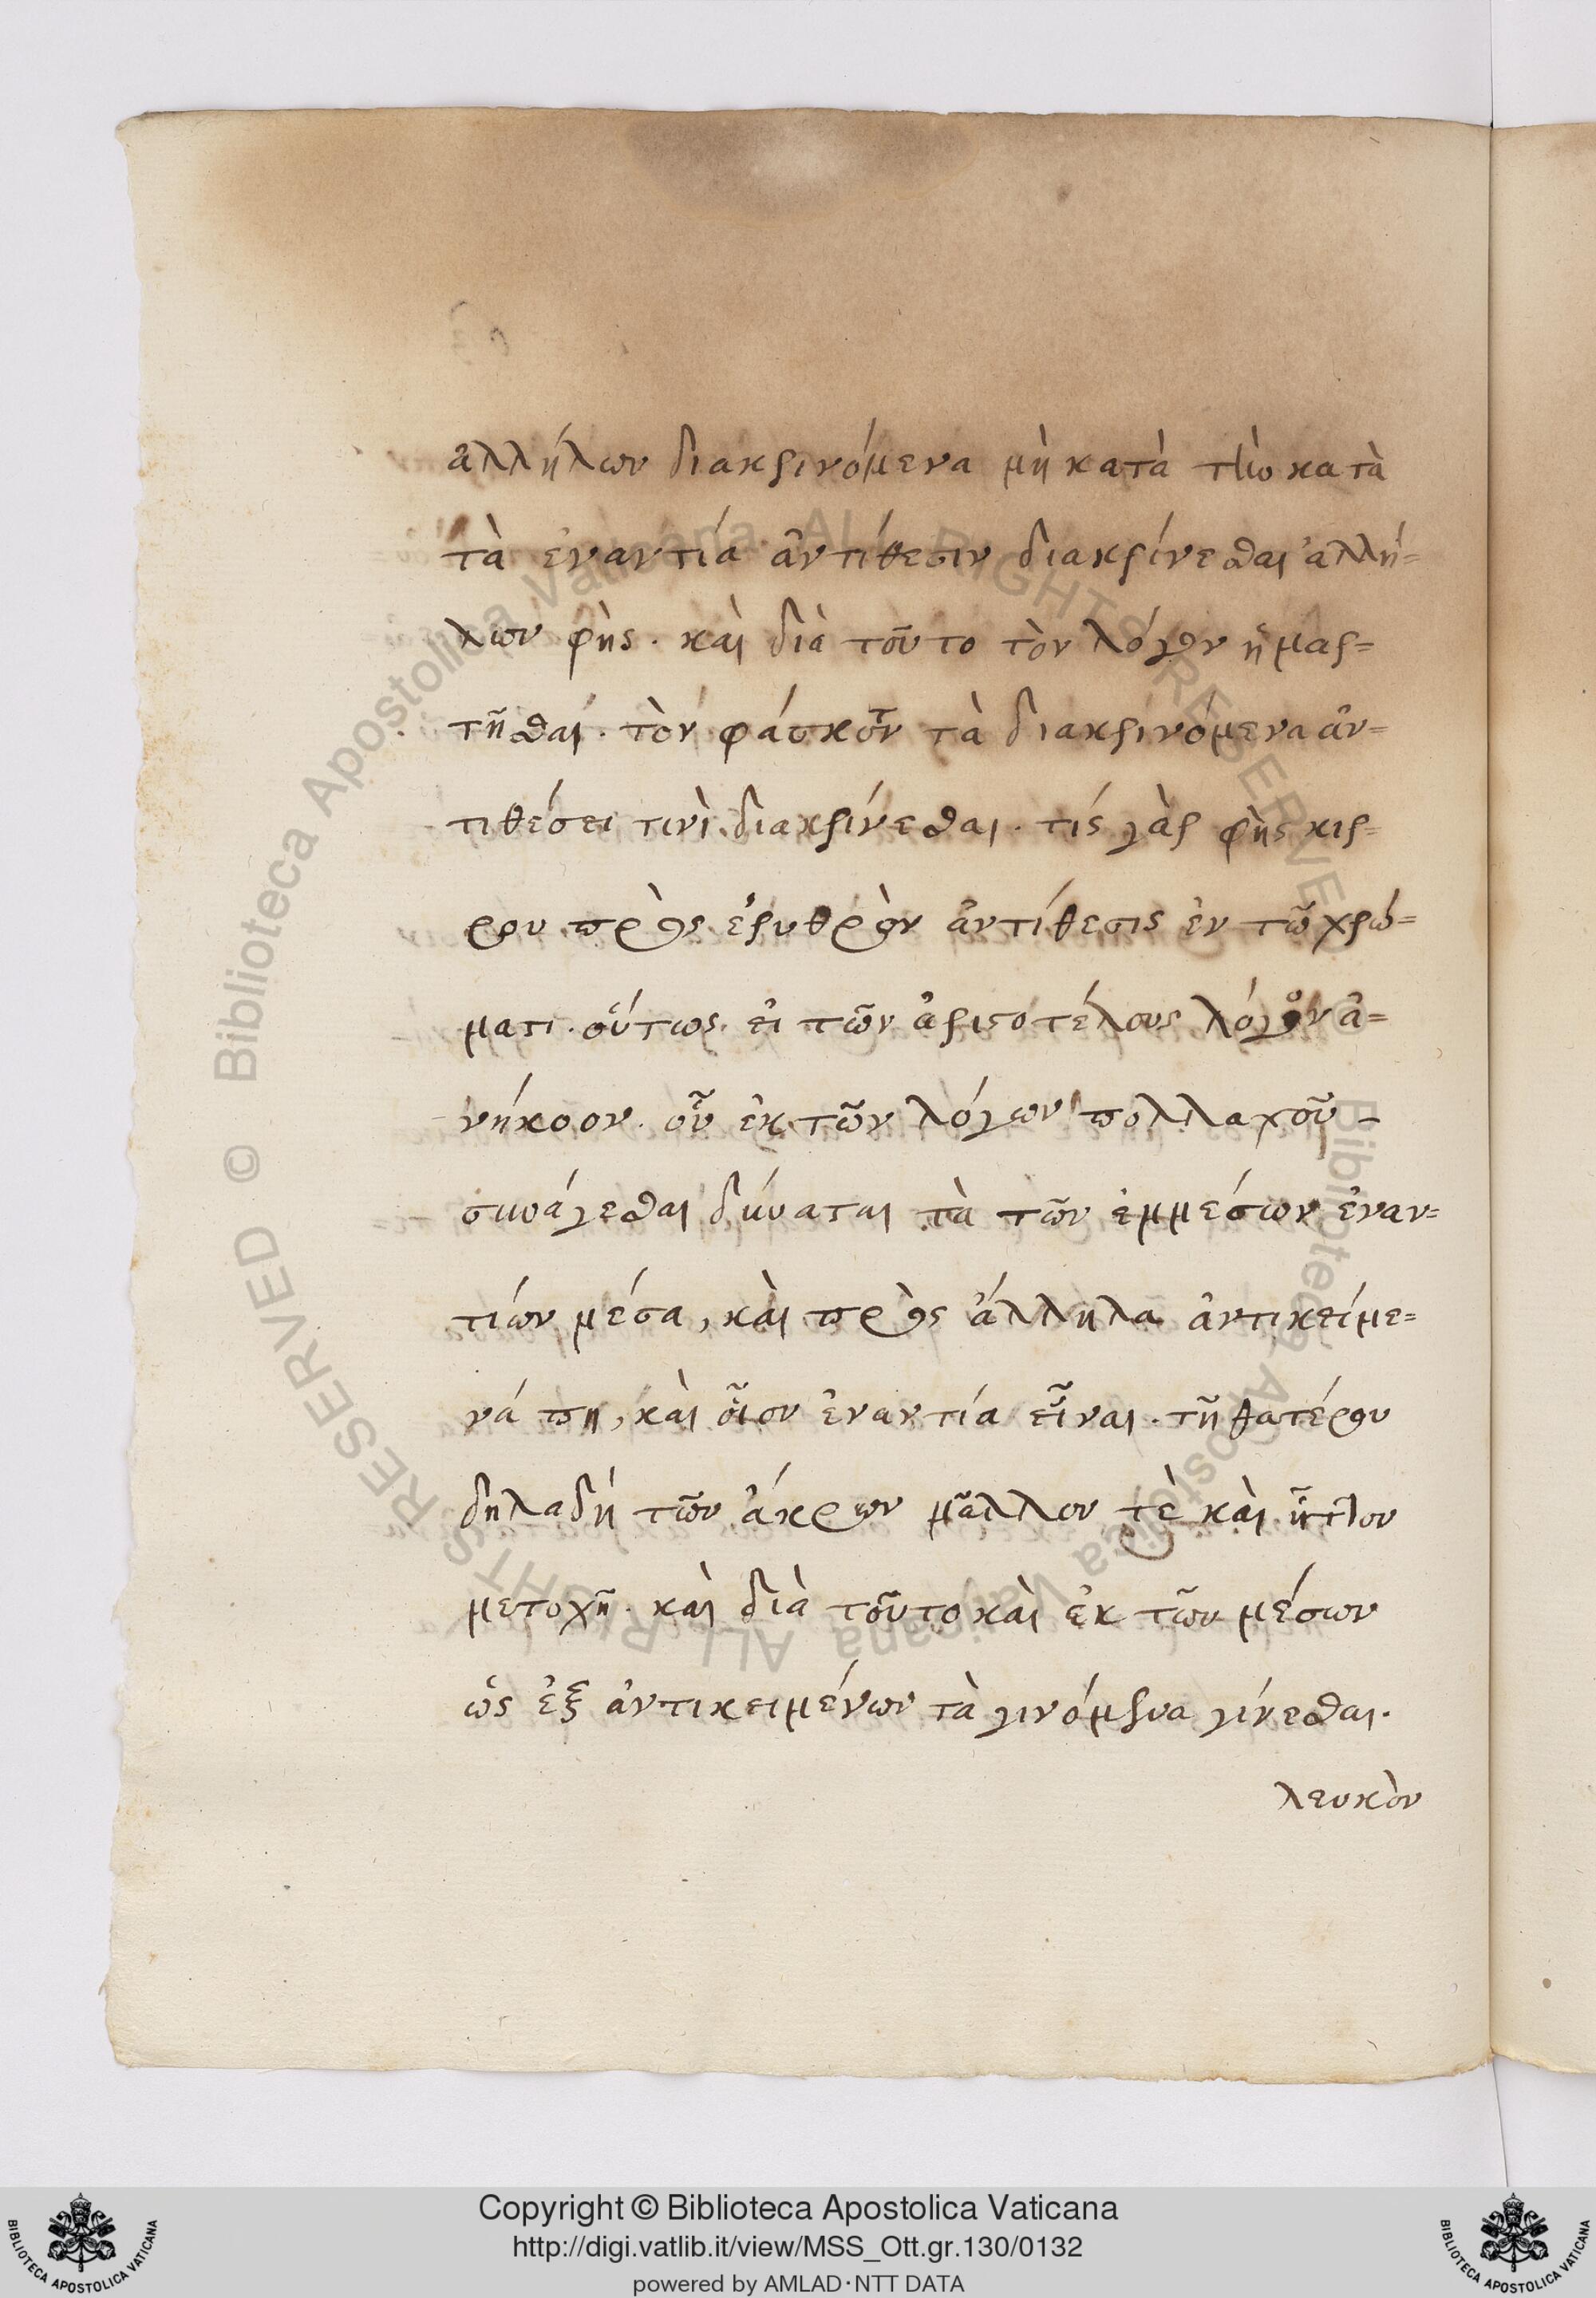 ἀλλήλων διακρινόμενα μὴ κατὰ τὴν κατὰ
τὰ ἐναντία ἀντίθεσιν διακρίνεσθαι ἀλλή=
λων φῂς. καὶ διὰ τοῦτο τὸν λόγον ἡμαρ=
τῆσθαι. τὸν φάσκοντα τὰ διακρινόμενα ἀν=
τιθέσει τινὶ διακρίνεσθαι. τίς γὰρ φῂς κιρ=
ροῦ πρὸς ἐρυθρὸν ἀντίθεσις ἐν τῷ χρώ=
ματι. οὕτως εἶ τῶν ἀριστοτέλους λόγων ἀ=
νήκοον. οὗ ἐκ τῶν λόγων πολλαχοῦ -
συνάγεσθαι δύναται τὰ τῶν ἐμμέσων ἐναν=
τίων μέσα, καὶ πρὸς ἄλληλα ἀντικείμε=
νά πη, καὶ οἷον ἐναντία εἶναι. τῇ θατέρου
δηλαδὴ τῶν ἄκρων μᾶλλον τὲ καὶ ἧττον
μετοχῇ. καὶ διὰ τοῦτο καὶ ἐκ τῶν μέσων
ὡς ἐξ ἀντικειμένων τὰ γινόμενα γίνεσθαι.
λευκὸν
© Biblioteca Apostolica Vaticana ALL RIGHTS RESERVED
Biblioteca Apostolica Vaticana ALL RIGHTS RESERVED
Copyright © Biblioteca Apostolica Vaticana
http://digi.vatlib.it/view/MSS_Ott.gr.130/0132
powered by AMLAD·NTT DATA
BIBLIOTECA APOSTOLICA VATICANA
BIBLIOTECA APOSTOLICA VATICANA